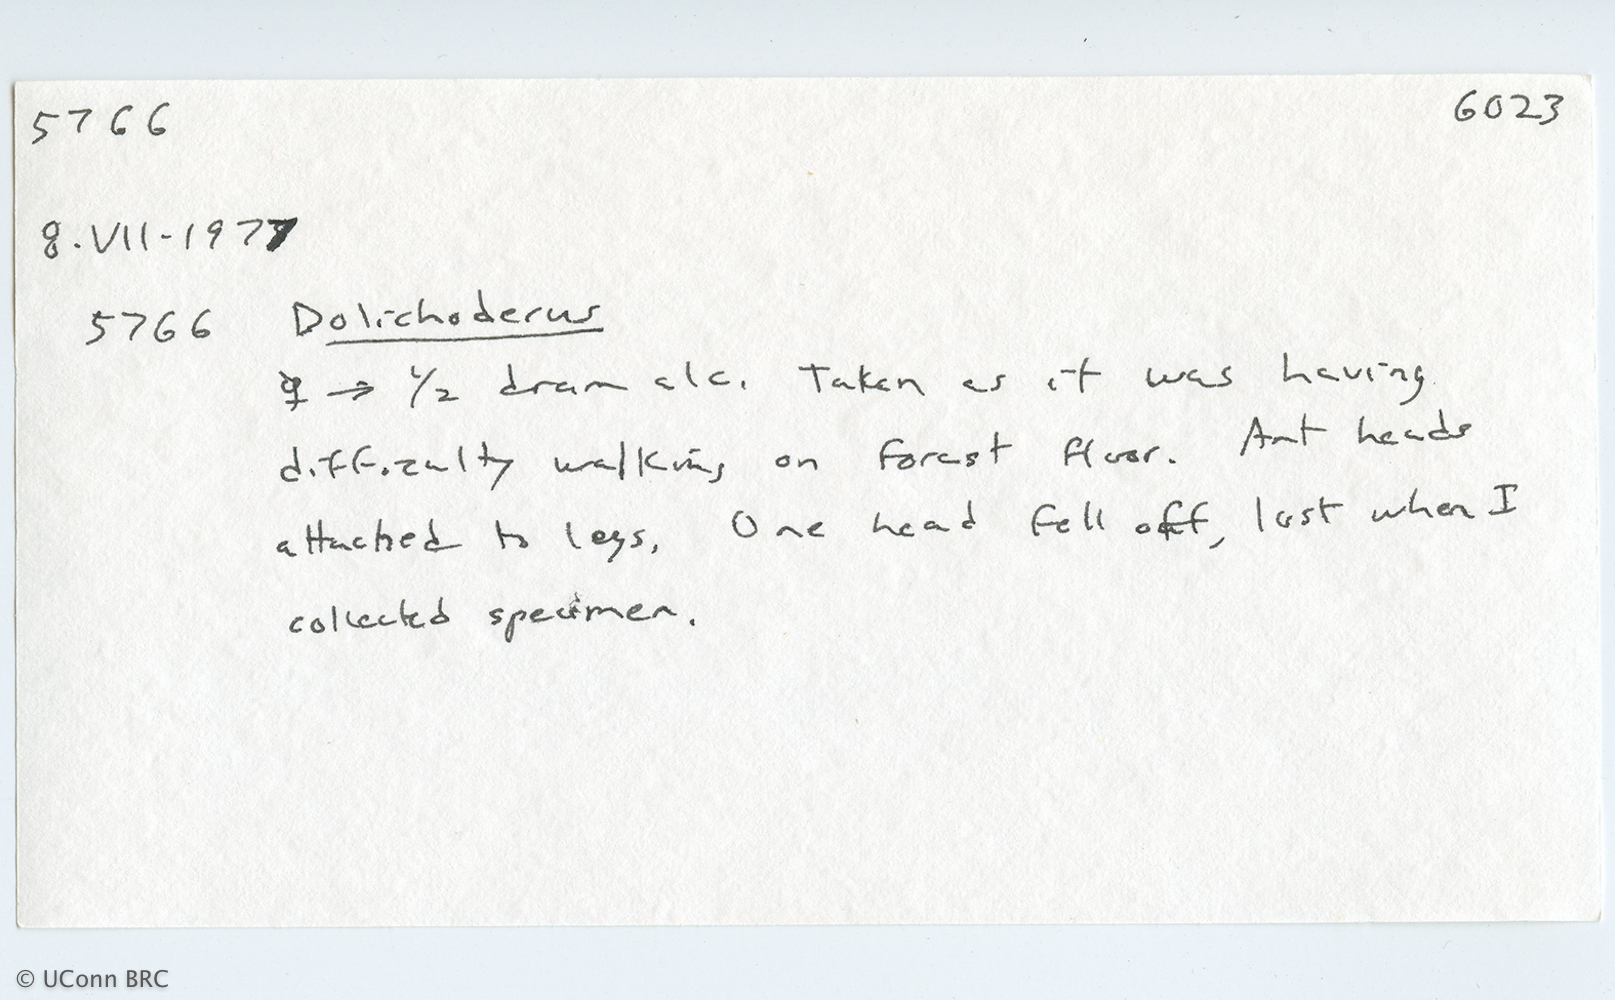 5766
6023
8.VII-1977
5766 Dolichoderus
☿ → 1/2 dram alc. Taken as it was having
difficulty walking on forest floor. Ant heads
attached to legs. One head fell off, lost when I
collected specimen.
© UConn BRC